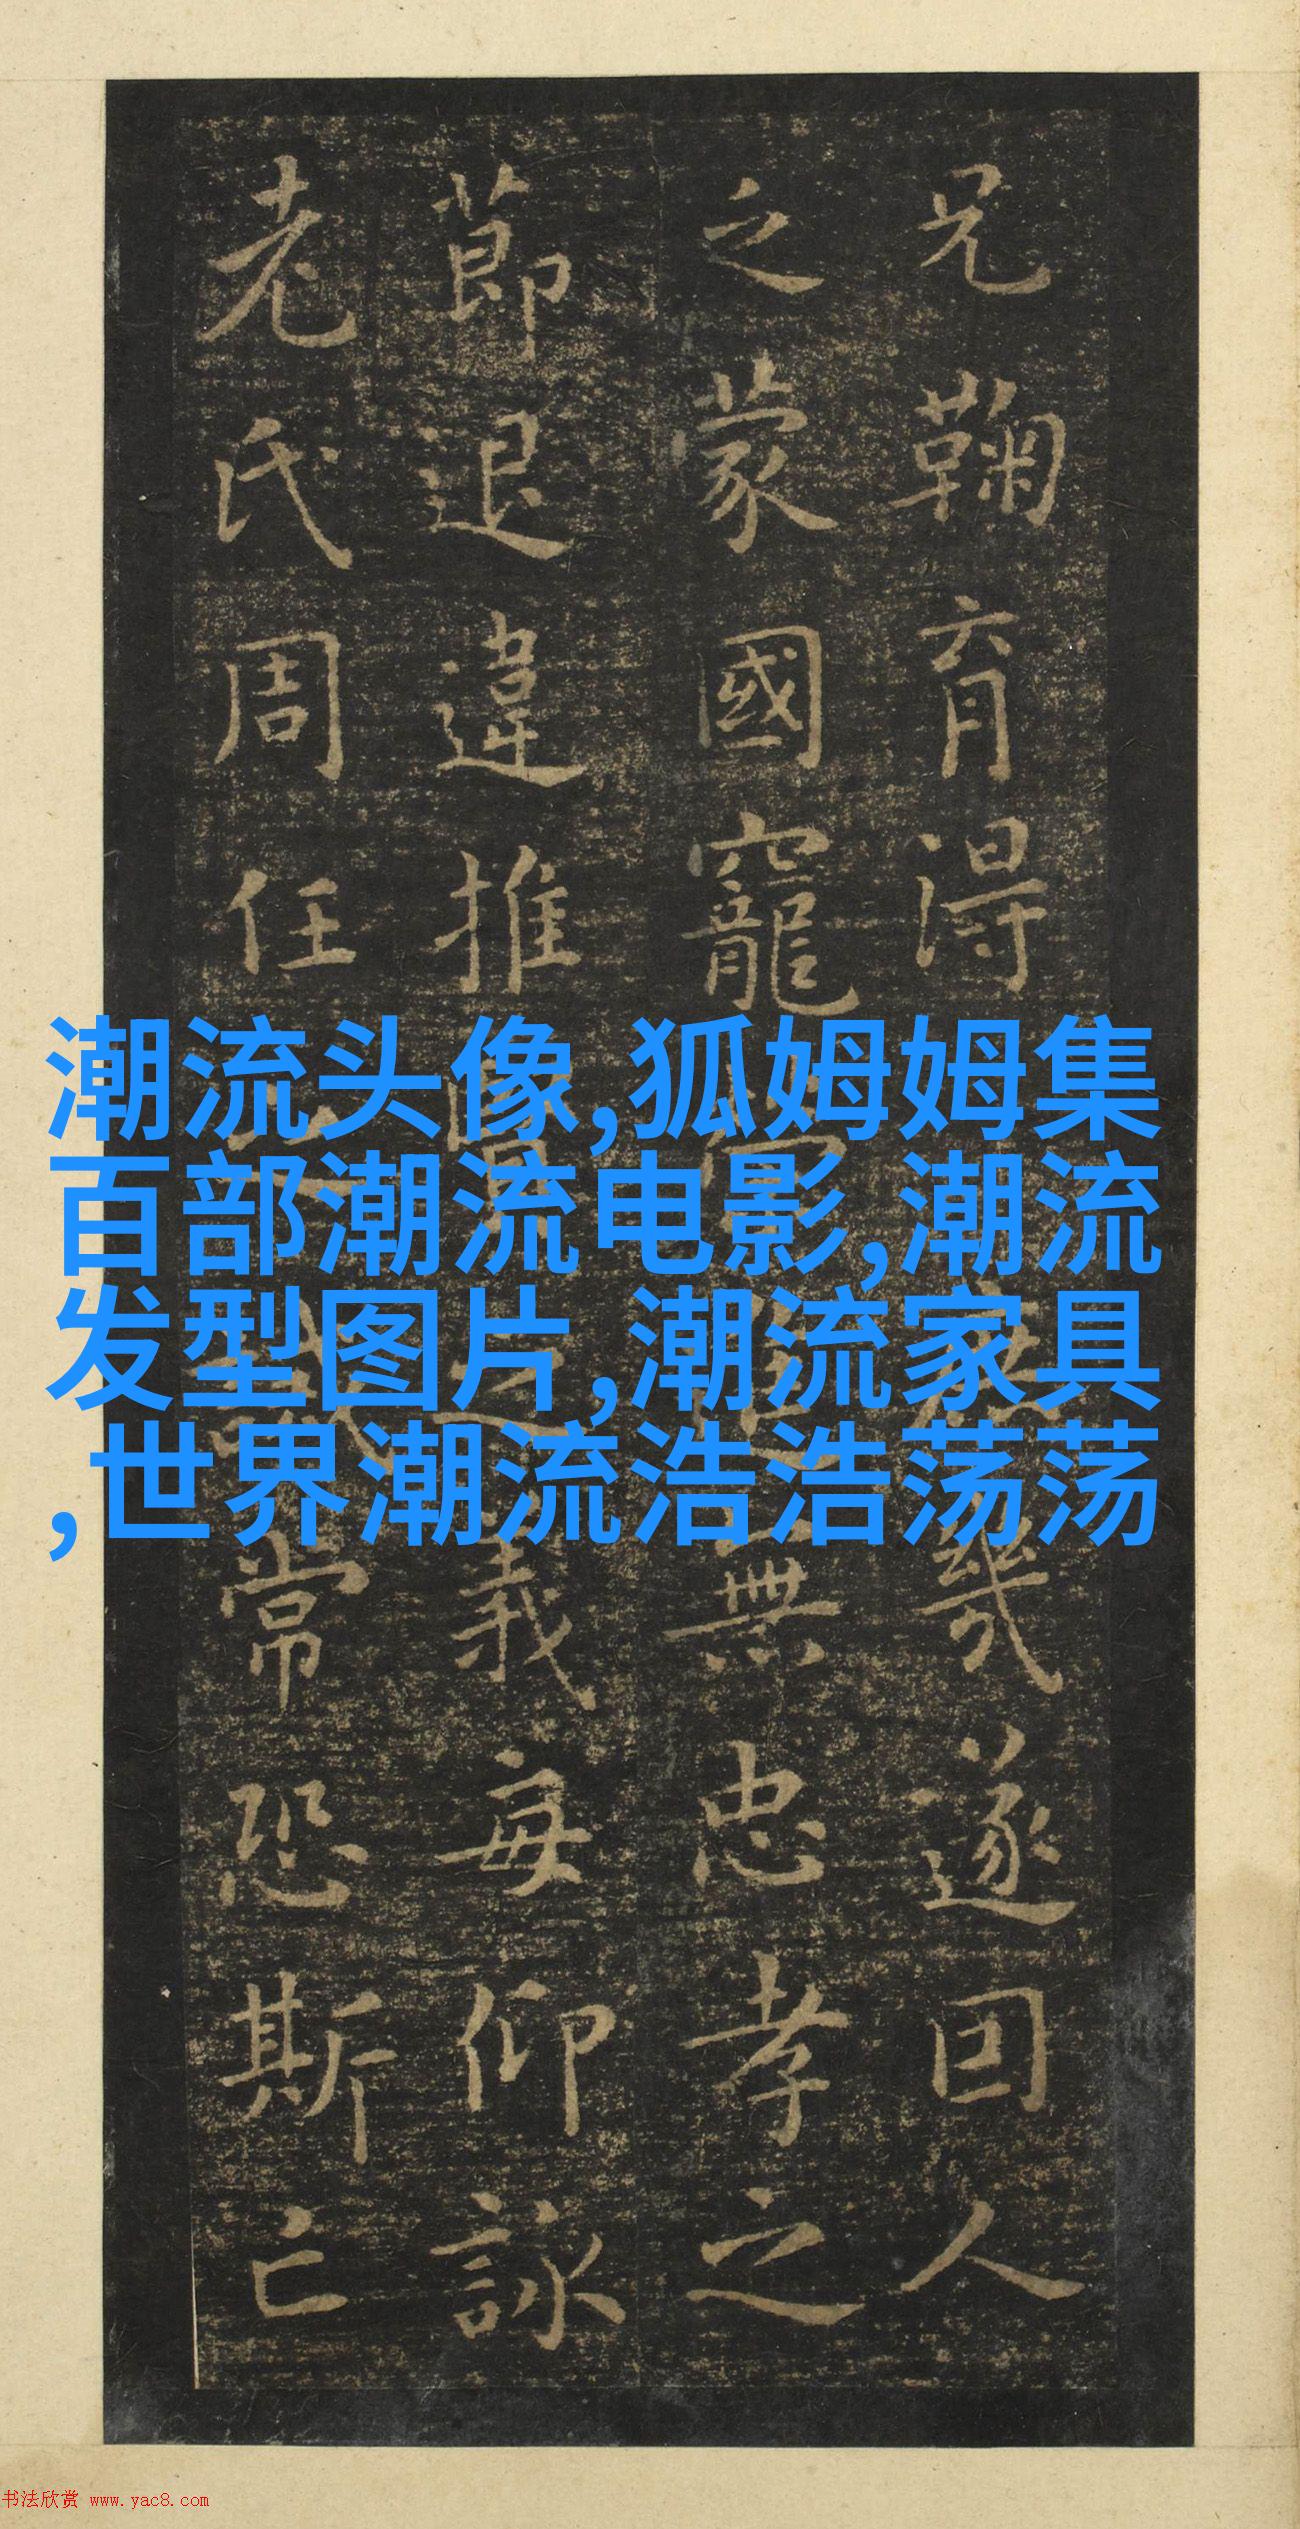 兄鞠育得幾遂因人
乏蒙國寵無忠孝之
莭退違推義每仰詠
老氏周任常恐斯亡
潮流头像,狐姆姆集
百部潮流电影,潮流
发型图片,潮流家具
,世界潮流浩浩荡荡
书法欣赏 www.yac8.com